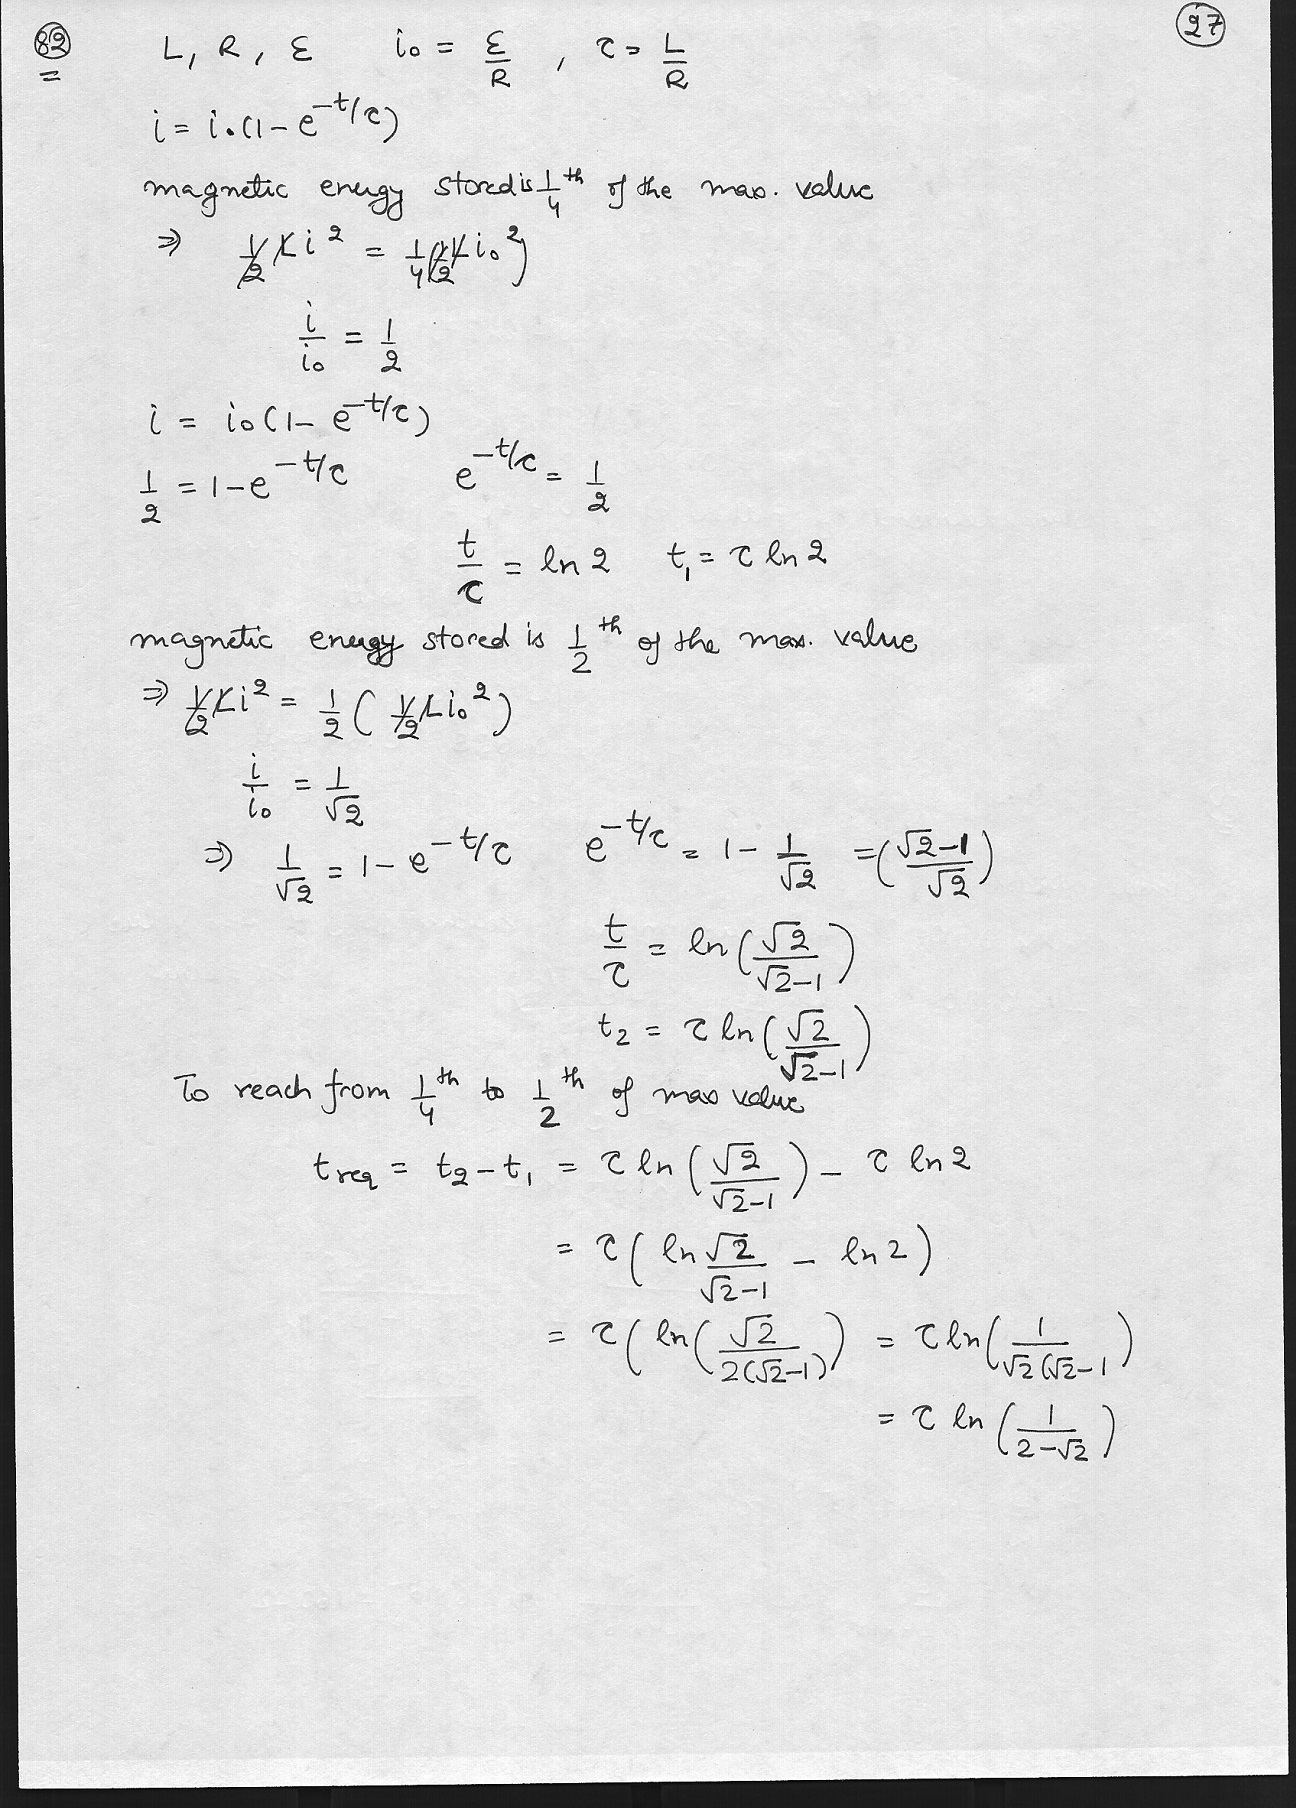 27
82 L, R, ε i₀ = ε/R , τ = L/R
i = i₀(1 - e^(-t/τ))
magnetic energy stored is 1/4 th of the max. value
⇒ 1/2 Li² = 1/4 (1/2 Li₀²)
i/i₀ = 1/2
i = i₀(1 - e^(-t/τ))
1/2 = 1 - e^(-t/τ) e^(-t/τ) = 1/2
t/τ = ln 2 t₁ = τ ln 2
magnetic energy stored is 1/2 th of the max. value
⇒ 1/2 Li² = 1/2 (1/2 Li₀²)
i/i₀ = 1/√2
⇒ 1/√2 = 1 - e^(-t/τ) e^(-t/τ) = 1 - 1/√2 = ((√2-1)/√2)
t/τ = ln(√2/(√2-1))
t₂ = τ ln(√2/(√2-1))
To reach from 1/4 th to 1/2 th of max value
t req = t₂ - t₁ = τ ln(√2/(√2-1)) - τ ln 2
= τ(ln √2/(√2-1) - ln 2)
= τ(ln(√2/(2(√2-1))) = τ ln(1/(√2(√2-1))
= τ ln(1/(2-√2))